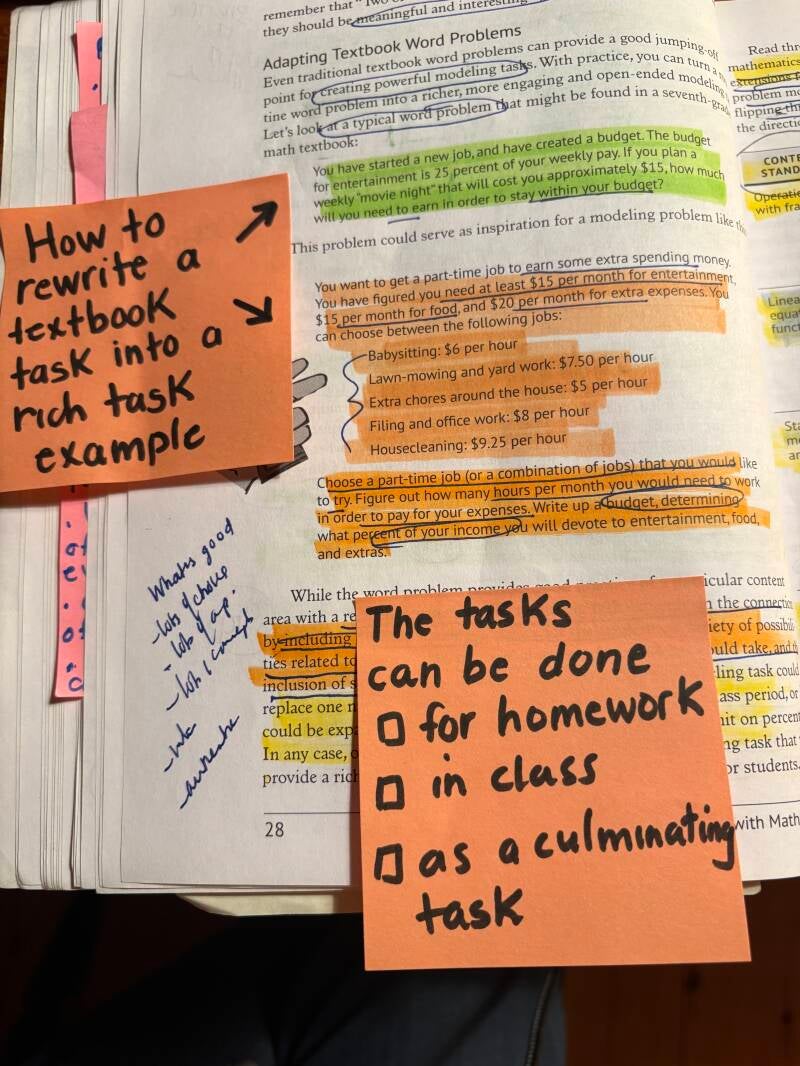 remember that
they should be meaningful and interesting
Adapting Textbook Word Problems
Even traditional textbook word problems can provide a good jumping-off
point for creating powerful modeling tasks. With practice, you can turn a
tine word problem into a richer, more engaging and open-ended modeling
Let's look at a typical word problem that might be found in a seventh-grade
math textbook:
You have started a new job, and have created a budget. The budget
for entertainment is 25 percent of your weekly pay. If you plan a
weekly "movie night" that will cost you approximately $15, how much
will you need to earn in order to stay within your budget?
This problem could serve as inspiration for a modeling problem like
You want to get a part-time job to earn some extra spending money.
You have figured you need at least $15 per month for entertainment,
$15 per month for food, and $20 per month for extra expenses. You
can choose between the following jobs:
Babysitting: $6 per hour
Lawn-mowing and yard work: $7.50 per hour
Extra chores around the house: $5 per hour
Filing and office work: $8 per hour
Housecleaning: $9.25 per hour
Choose a part-time job (or a combination of jobs) that you would like
to try. Figure out how many hours per month you would need to work
in order to pay for your expenses. Write up a budget, determining
what percent of your income you will devote to entertainment, food,
and extras.
While the word problem provides good
area with a
by including
ties related to
inclusion of
replace one
could be
In any case,
provide a
28
icular content
the connection
iety of
take, and
ling task could
ass period, or
on percent
ng task that
or students.
with Math
How to
rewrite a
textbook
task into a
rich task
example
The tasks
can be done
for homework
in class
as a culminating
task
What's good
- lots of choice
- lots of
- lots of concepts
Read
mathematics
extensions
problem
flipping
the
CONTE
STAND
with fra
Linea
equa
funct